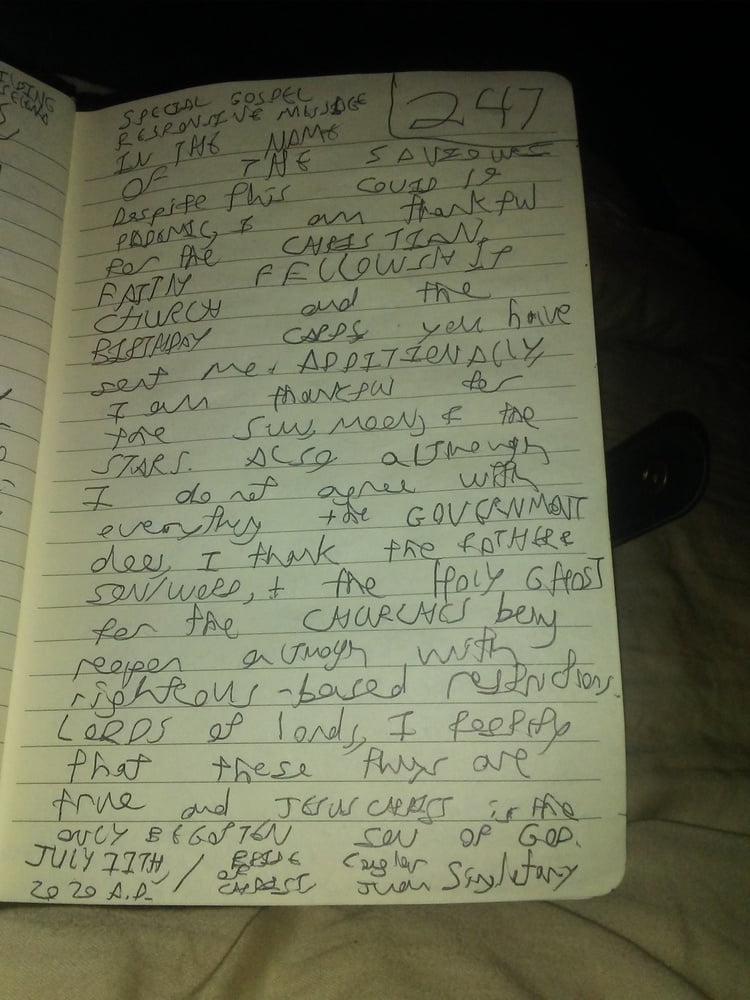 247
SPECIAL GOSPEL
RESPONSIVE MESSAGE
IN THE NAME
OF THE SAVIOUR
Despite this COVID 19
PADEMIC, I am thankful
for the CHRISTIAN
FAITH FELLOWSHIP
CHURCH and the
BIRTHDAY CARDS you have
sent me. ADDITIONALLY,
I am thankful for
the SUN, MOON, & the
STARS. ALSO although
I do not agree with
everything the GOVERNMENT
does, I thank the FATHER
SON/WORD, & the HOLY GHOST
for the CHURCHES being
reopen although with
righteous-based restrictions.
LORDS of lords, I testify
that these things are
true and JESUS CHRIST is the
ONLY BEGOTTEN SON OF GOD.
JULY 11TH, / BRIDE
2020 A.D. OF CHRIST Juan Singletary